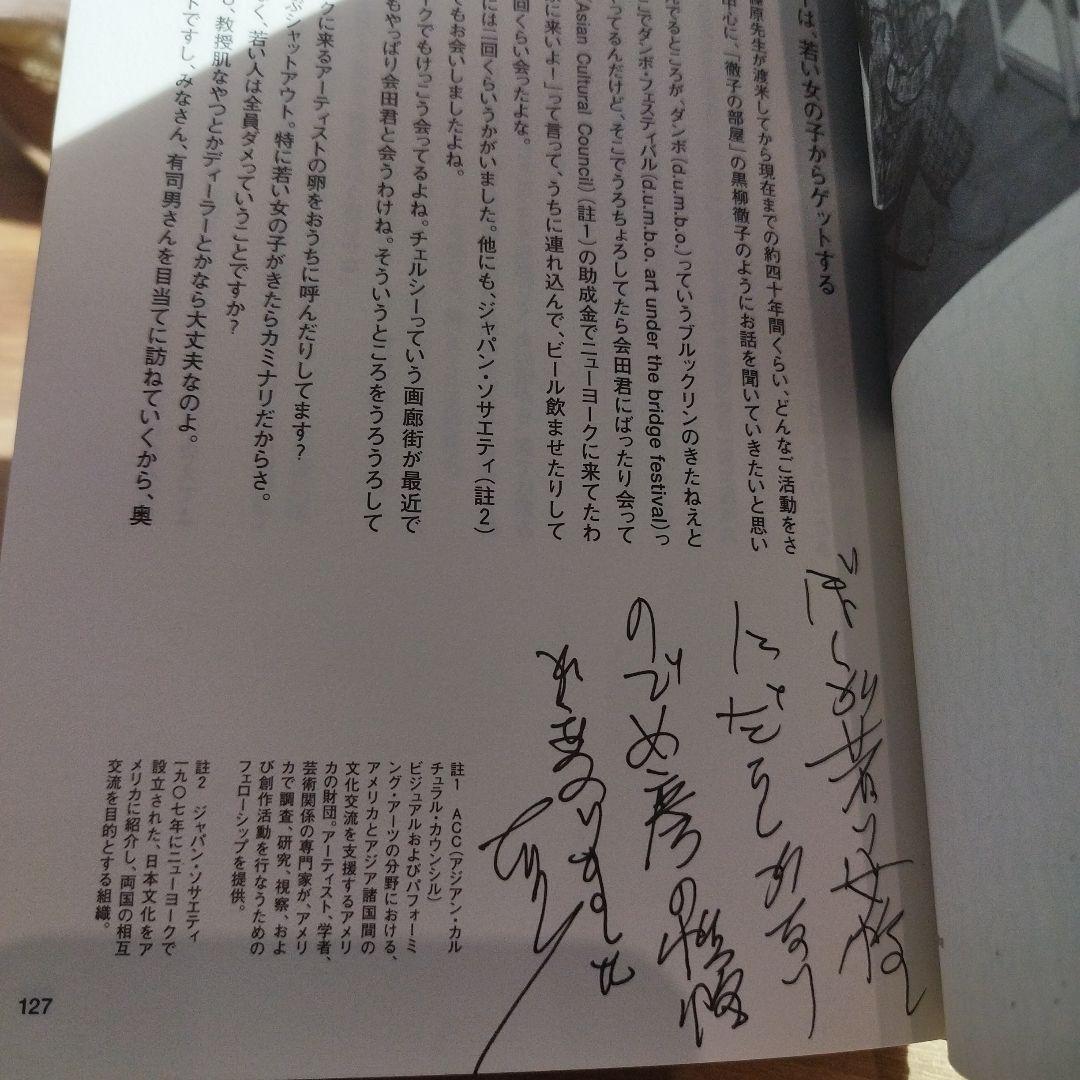 ーは、若い女の子からゲットする
篠原先生が渡米してから現在までの約四十年間くらい、どんなご活動をさ
中心に、「徹子の部屋」の黒柳徹子のようにお話を聞いていきたいと思い
でるところが、ダンボ(d.u.m.b.o.)っていうブルックリンのきたねえと
こでダンボ・フェスティバル(d.u.m.b.o. art under the bridge festival)っ
ってるんだけど、そこでうろちょろしてたら会田君にばったり会って
Asian Cultural Council)(註1)の助成金でニューヨークに来てたわ
に来いよー」って言って、うちに連れ込んで、ビール飲ませたりして
回くらい会ったよな。
には二回くらいうかがいました。他にも、ジャパン・ソサエティ(註2)
でもお会いしましたよね。
ークでもけっこう会ってるよね。チェルシーっていう画廊街が最近で
もやっぱり会田君と会うわけね。そういうところをうろうろして
クに来るアーティストの卵をおうちに呼んだりしてます?
ぶシャットアウト。特に若い女の子がきたらカミナリだからさ。
く、若い人は全員ダメっていうことですか?
、教授肌なやつとかディーラーとかなら大丈夫なのよ。
トですし、みなさん、有司男さんを目当てに訪ねていくから、奥
若い女
にだらしがない
のでめ
の
註1 ACC(アジアン・カル
チュラル・カウンシル)
ビジュアルおよびパフォーミ
ング・アーツの分野における、
アメリカとアジア諸国間の
文化交流を支援するアメリ
カの財団。アーティスト、学者、
芸術関係の専門家が、アメリ
カで調査、研究、視察、およ
び創作活動を行なうための
フェローシップを提供。
註2 ジャパン・ソサエティ
一九〇七年にニューヨークで
設立された、日本文化をア
メリカに紹介し、両国の相互
交流を目的とする組織。
127